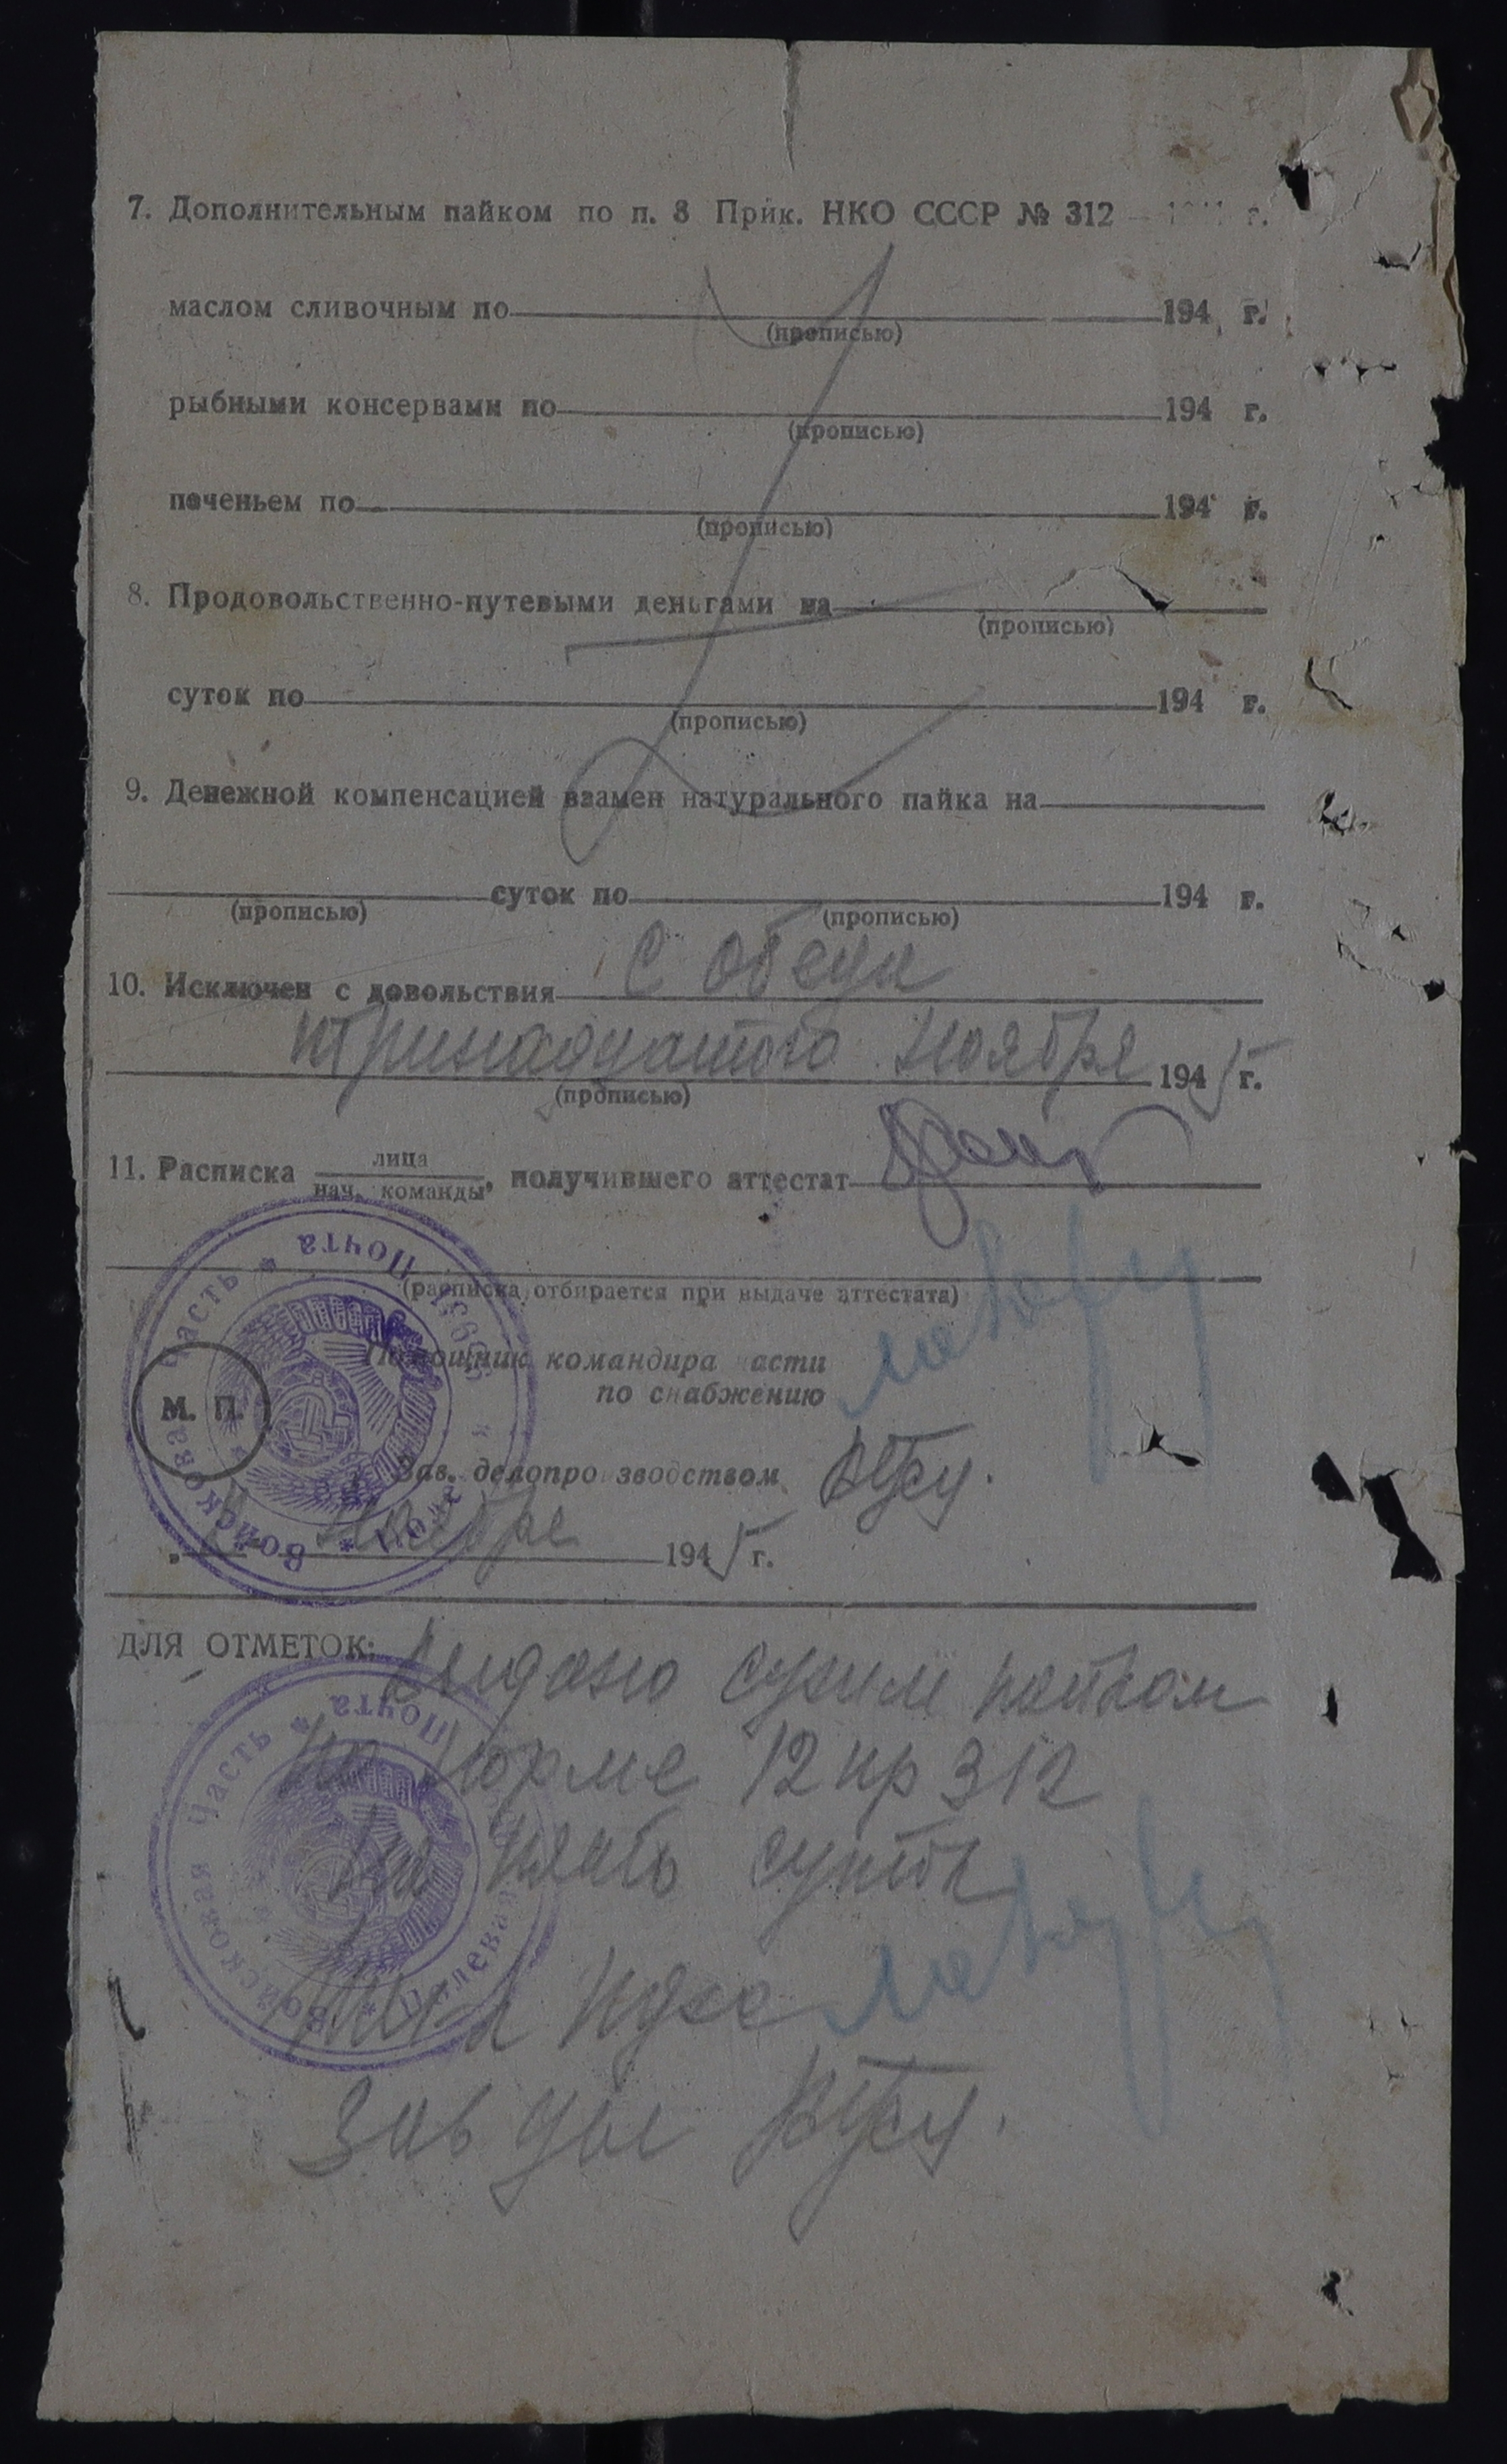 7. Дополнительным пайком по п. 3 Прик. НКО СССР № 312 — г.
маслом сливочным по 194 г.
(прописью)
рыбными консервами по 194 г.
(прописью)
печеньем по 194 г.
(прописью)
8. Продовольственно-путевыми деньгами на
(прописью)
суток по 194 г.
(прописью)
9. Денежной компенсацией взамен натурального пайка на
суток по 194 г.
(прописью) (прописью)
10. Исключен с довольствия с обеда
тринадцатого ноября 1945 г.
(прописью)
11. Расписка лица
нач. команды, получившего аттестат
(расписка отбирается при выдаче аттестата)
Помощник командира части
по снабжению
М. П.
Зав. делопроизводством
ноября 1945 г.
Войсковая часть * Полевая почта *
ДЛЯ ОТМЕТОК: Выдано сухим пайком
по норме 12 пр 312
на пять суток
Зав дел
Войсковая часть * Полевая Почта *